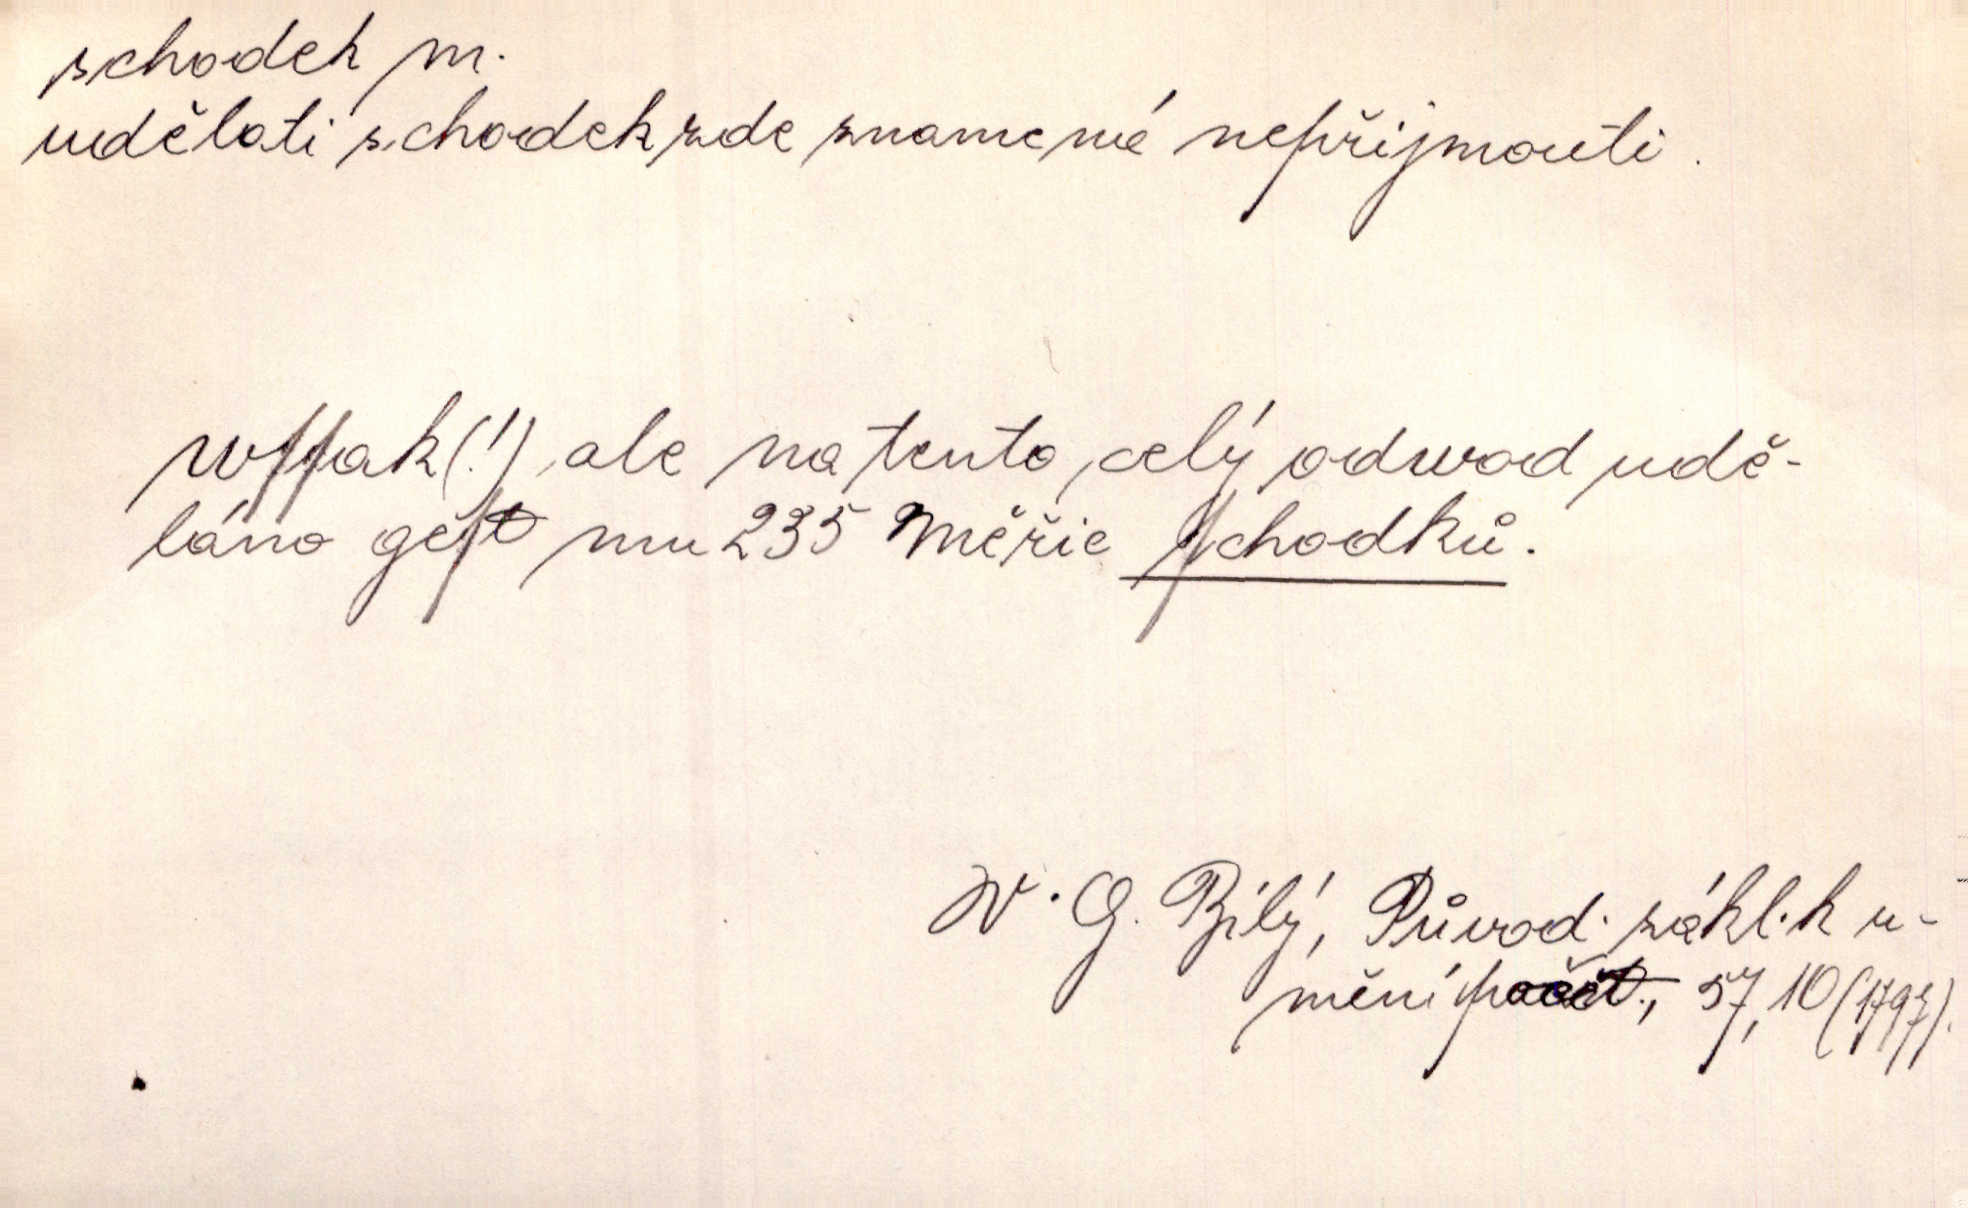 schodek m.
udělati schodek zde znamená nepřijmouti.
wſſak(!) ale na tento celý odwod udě-
láno geſt mu 235 Měřic ſchodků.
W. G. Bílý, Původ. zákl. k u-
mění počet., 57, 10 (1797).